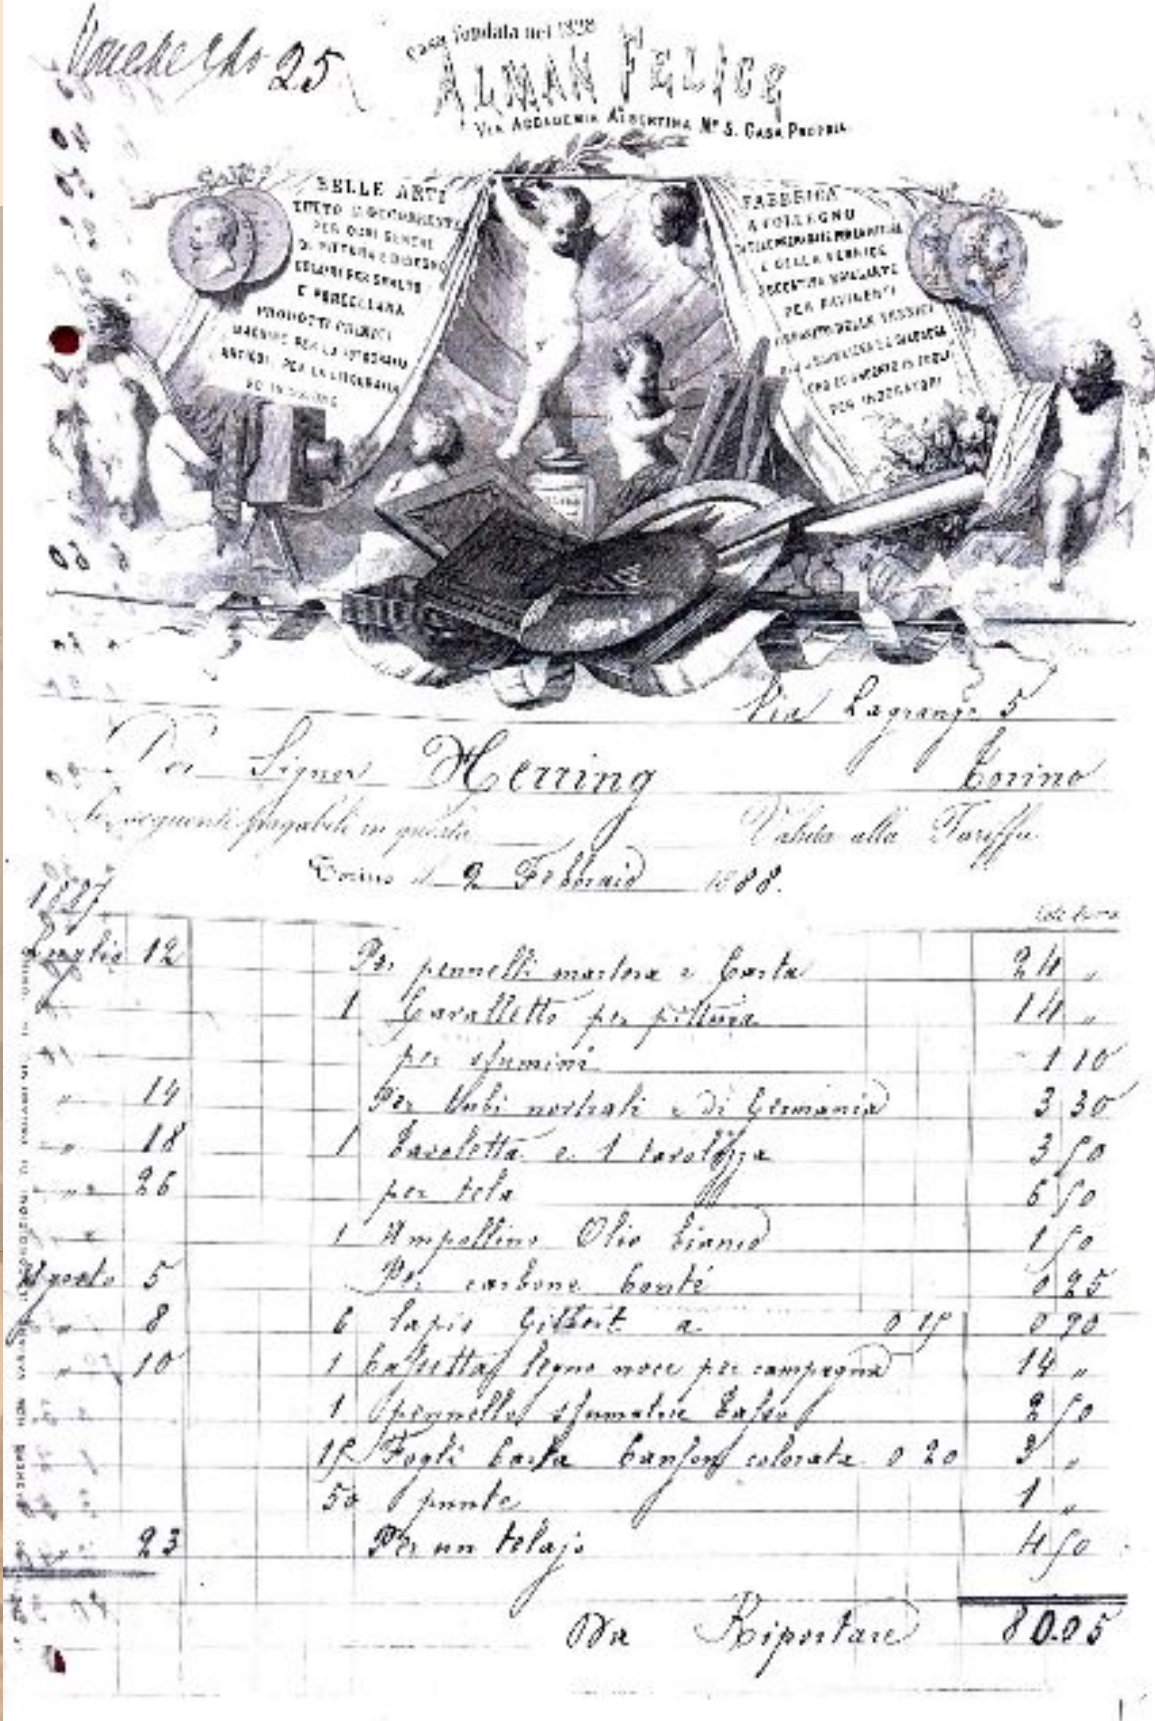 25
Casa fondata nel 1838
ALMAN FELICE
VIA ACCADEMIA ALBERTINA Nº 5. CASA PROPRIA.
BELLE ARTI
TUTTO L'OCCORRENTE
PER OGNI GENERE
DI PITTURA E DISEGNO
COLORI PER SMALTO
E PORCELLANA
PRODOTTI CHIMICI
MACCHINE PER LA FOTOGRAFIA
PER LA LITOGRAFIA
ED INCISIONE
FABBRICA
A COLLEGNO
DI TELE PREPARATE PER LA PITTURA
E DELLA VERNICE
ESSICATIVA BRILLANTE
PER PAVIMENTI
DEPOSITO DELLE VERNICI
ORO ED ARGENTO IN FOGLI
PER INDORATORI
Via Lagrange 5
Signor Herring Torino
le seguenti pagabili in questa Valuta alla Tariffa
Torino il 2 Febbraio 1888.
1887
Luglio 12 Per pennelli martora e Carta 24 "
1 Cavalletto per pittura 14 "
per sfumini 1 10
" 14 Per tubi nostrali e di Germania 3 30
" 18 1 tavoletta e 1 tavolozza 3 50
" 26 per tela 6 50
1 Ampollino Olio bianco 1 50
Agosto 5 Per carbone Conté 0 25
" 8 6 lapis Gilbert a 0 15 0 90
" 10 1 Cassetta legno noce per campagna 14 "
1 pennello sfumatore tasso 2 50
15 Fogli Carta Canson colorata 0 20 3 "
50 punte 1 "
23 Per un telajo 4 50
Da Riportare 80.05